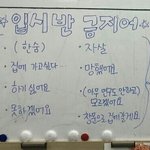 입시반 금지어
· (한숨)
· 집에 가고싶다…
· 하기 싫어요
· 못하겠어요
· 자살
· 망했어요
· (아무 연구도 안하고) 모르겠어요
· 창문으로 뛰어내릴게요